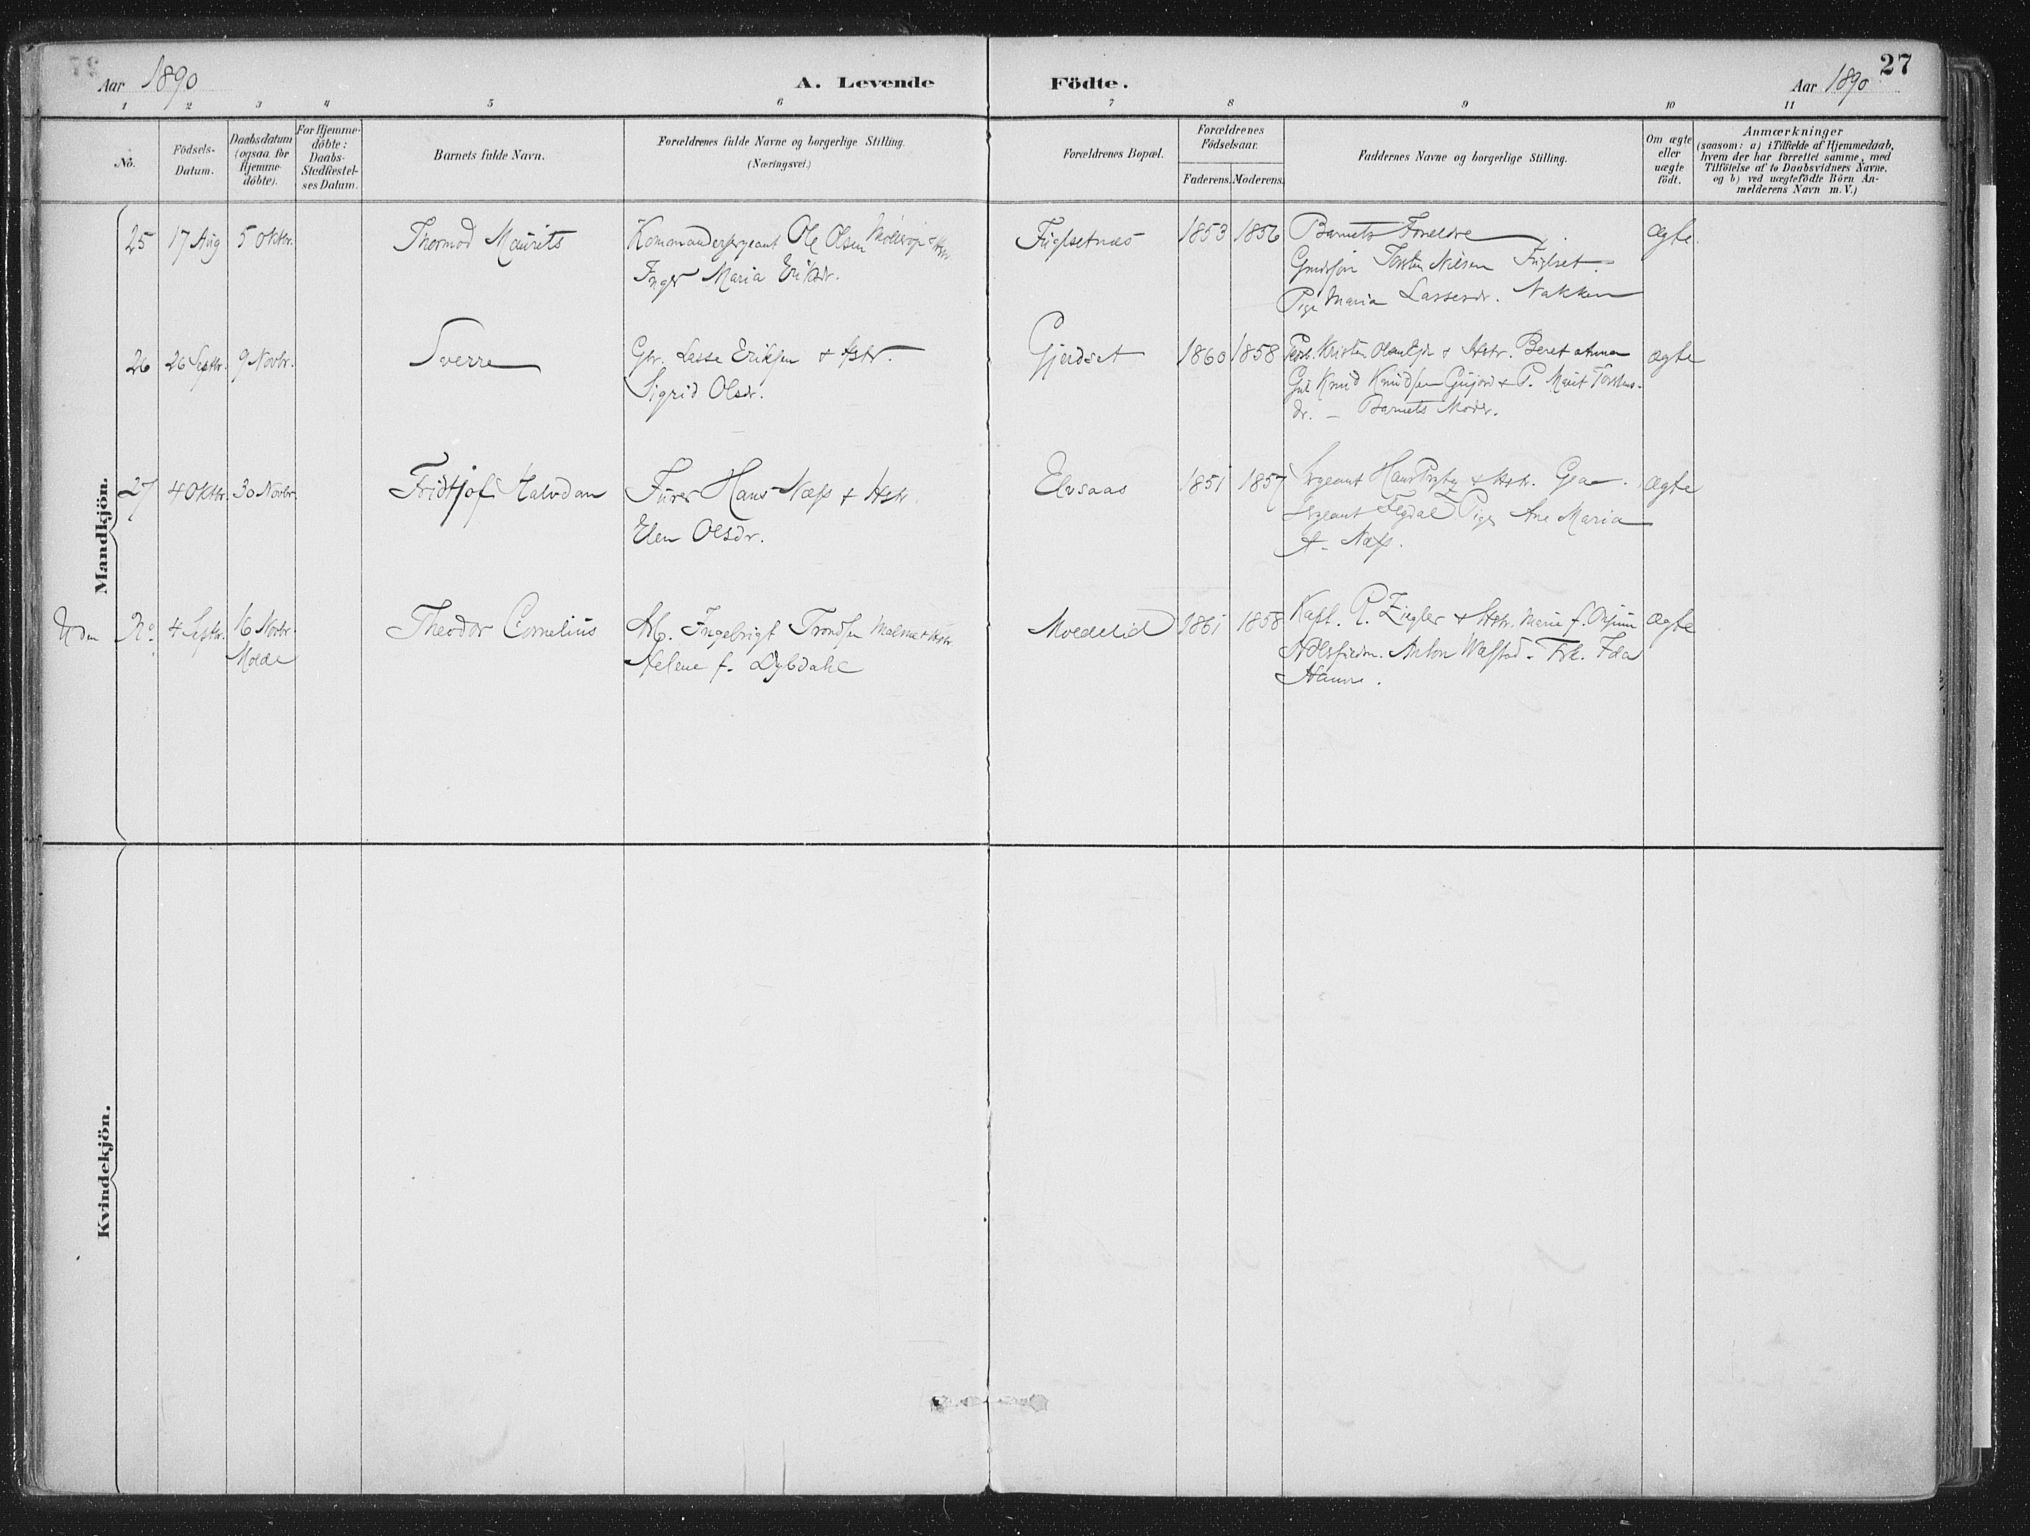 27
Aar 1890
A. Levende Födte.
Aar 1890
1 2 3 4 5 6 7 8 9 10 11
No.
Födsels-
Datum.
Daabsdatum
(ogsaa for
Hjemme-
döbte).
For Hjemme-
döbte:
Daabs-
Stadfæstel-
ses Datum.
Barnets fulde Navn.
Forældrenes fulde Navne og borgerlige Stilling.
(Næringsvei.)
Forældrenes Bopæl.
Forældrenes
Födselsaar.
Faderens. Moderens.
Faddernes Navne og borgerlige Stilling.
Om ægte
eller
uægte
födt.
Anmærkninger
(saasom: a) i Tilfælde af Hjemmedaab,
hvem der har forrettet samme, med
Tilföielse af to Daabsvidners Navne,
og b) ved uægtefödte Börn An-
melderens Navn m. V.)
Mandkjön.
25 17 Aug 5 Oktbr. Thormod Maurits Kommandersergeant Ole Olsen
Inger Maria Eriksdr.
Fuglsetnæs 1853 1856 Barnets Foreldre ægte.
Torsten Nilsen Fuglset.
Pige Maria Lassesdr. Nakken
26 26 Septbr. 9 Novbr. Sverre Gbr. Lasse Eriksen + Hstr.
Sigrid Olsdr.
Gjerdset 1860 1858 Kristen + Hstr. Beret Anna ægte
Knud Knudsen + P. Marit Torstens-
dr. – Barnets Moder.
27 4 Oktbr. 30 Novbr. Fridtjof Halvdan Furer Hans Næss + Hstr.
Elen Olsdr.
Elvsaas 1851 1857 Sergeant Hans + Hstr. ægte
Sergeant Pige Ane Maria
Næss.
Uden No. 4 Septbr. 16 Novbr.
Molde
Theodor Cornelius Ingebrigt Trondsen Malmæ + Hstr
Helene f. Dybdahl
Moldelid 1861 1858 Kapt. P. Ziegler + Hstr. Marie f. ægte
Anton Wafstad. Frk. Ida
Hanne.
Kvindekjön.